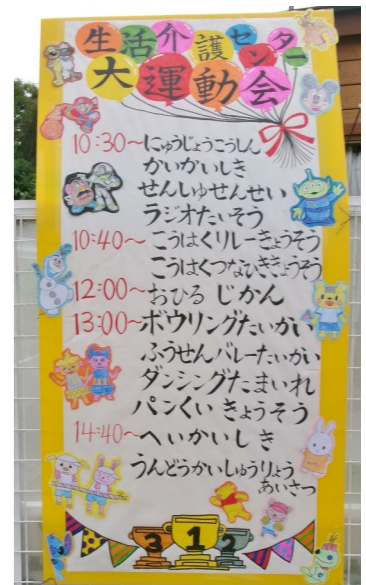 生活介護センター
大運動会
10:30～にゅうじょうこうしん
かいかいしき
せんしゅせんせい
ラジオたいそう
10:40～こうはくリレーきょうそう
こうはくつなひききょうそう
12:00～おひるじかん
13:00～ボウリングたいかい
ふうせんバレーたいかい
ダンシングたまいれ
パンくいきょうそう
14:40～へいかいしき
うんどうかいしゅうりょう
あいさつ
3 1 2